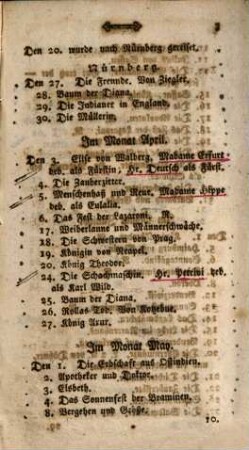 3
Den 20. wurde nach Nürnberg gereiset.
Nürnberg.
Den 27. Die Freunde. Von Ziegler.
28. Baum der Diana.
29. Die Indianer in England.
30. Die Müllerin.
Im Monat April.
Den 3. Elise von Walberg, Madame Erfurt
deb. als Fürstin, Hr. Deutsch als Fürst.
4. Die Zauberzitter.
5. Menschenhaß und Reue. Madame Hoppe
deb. als Eulalia.
6. Das Fest der Lazaroni. R.
17. Weiberlaune und Männerschwäche.
18. Die Schwestern von Prag.
19. Königin von Neapel.
20. König Theodor.
24. Die Schachmaschin, Hr. Petrini deb.
als Karl Wild.
25. Baum der Diana.
26. Rollas Tod. Von Kotzebue.
27. König Axur.
Im Monat May.
Den 1. Die Erbschaft aus Ostindien.
2. Apotheker und Doktor.
3. Elsbeth.
4. Das Sonnenfest der Braminen.
8. Vergehen und Größe.
10.